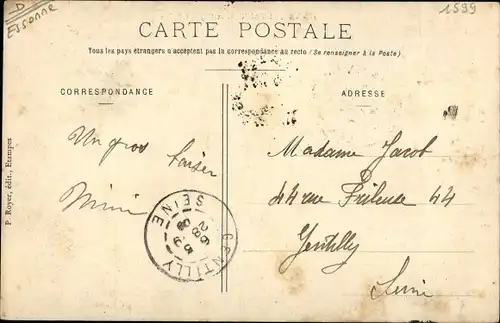 D
Essonne
1599
CARTE POSTALE
Tous les pays étrangers n'acceptent pas la correspondance au recto (Se renseigner à la Poste)
CORRESPONDANCE
ADRESSE
Un gros baiser
Mimi
Madame Jacob
44 rue Frileuse 44
Gentilly
Seine
GENTILLY
SEINE
P. Royer, édit., Etampes